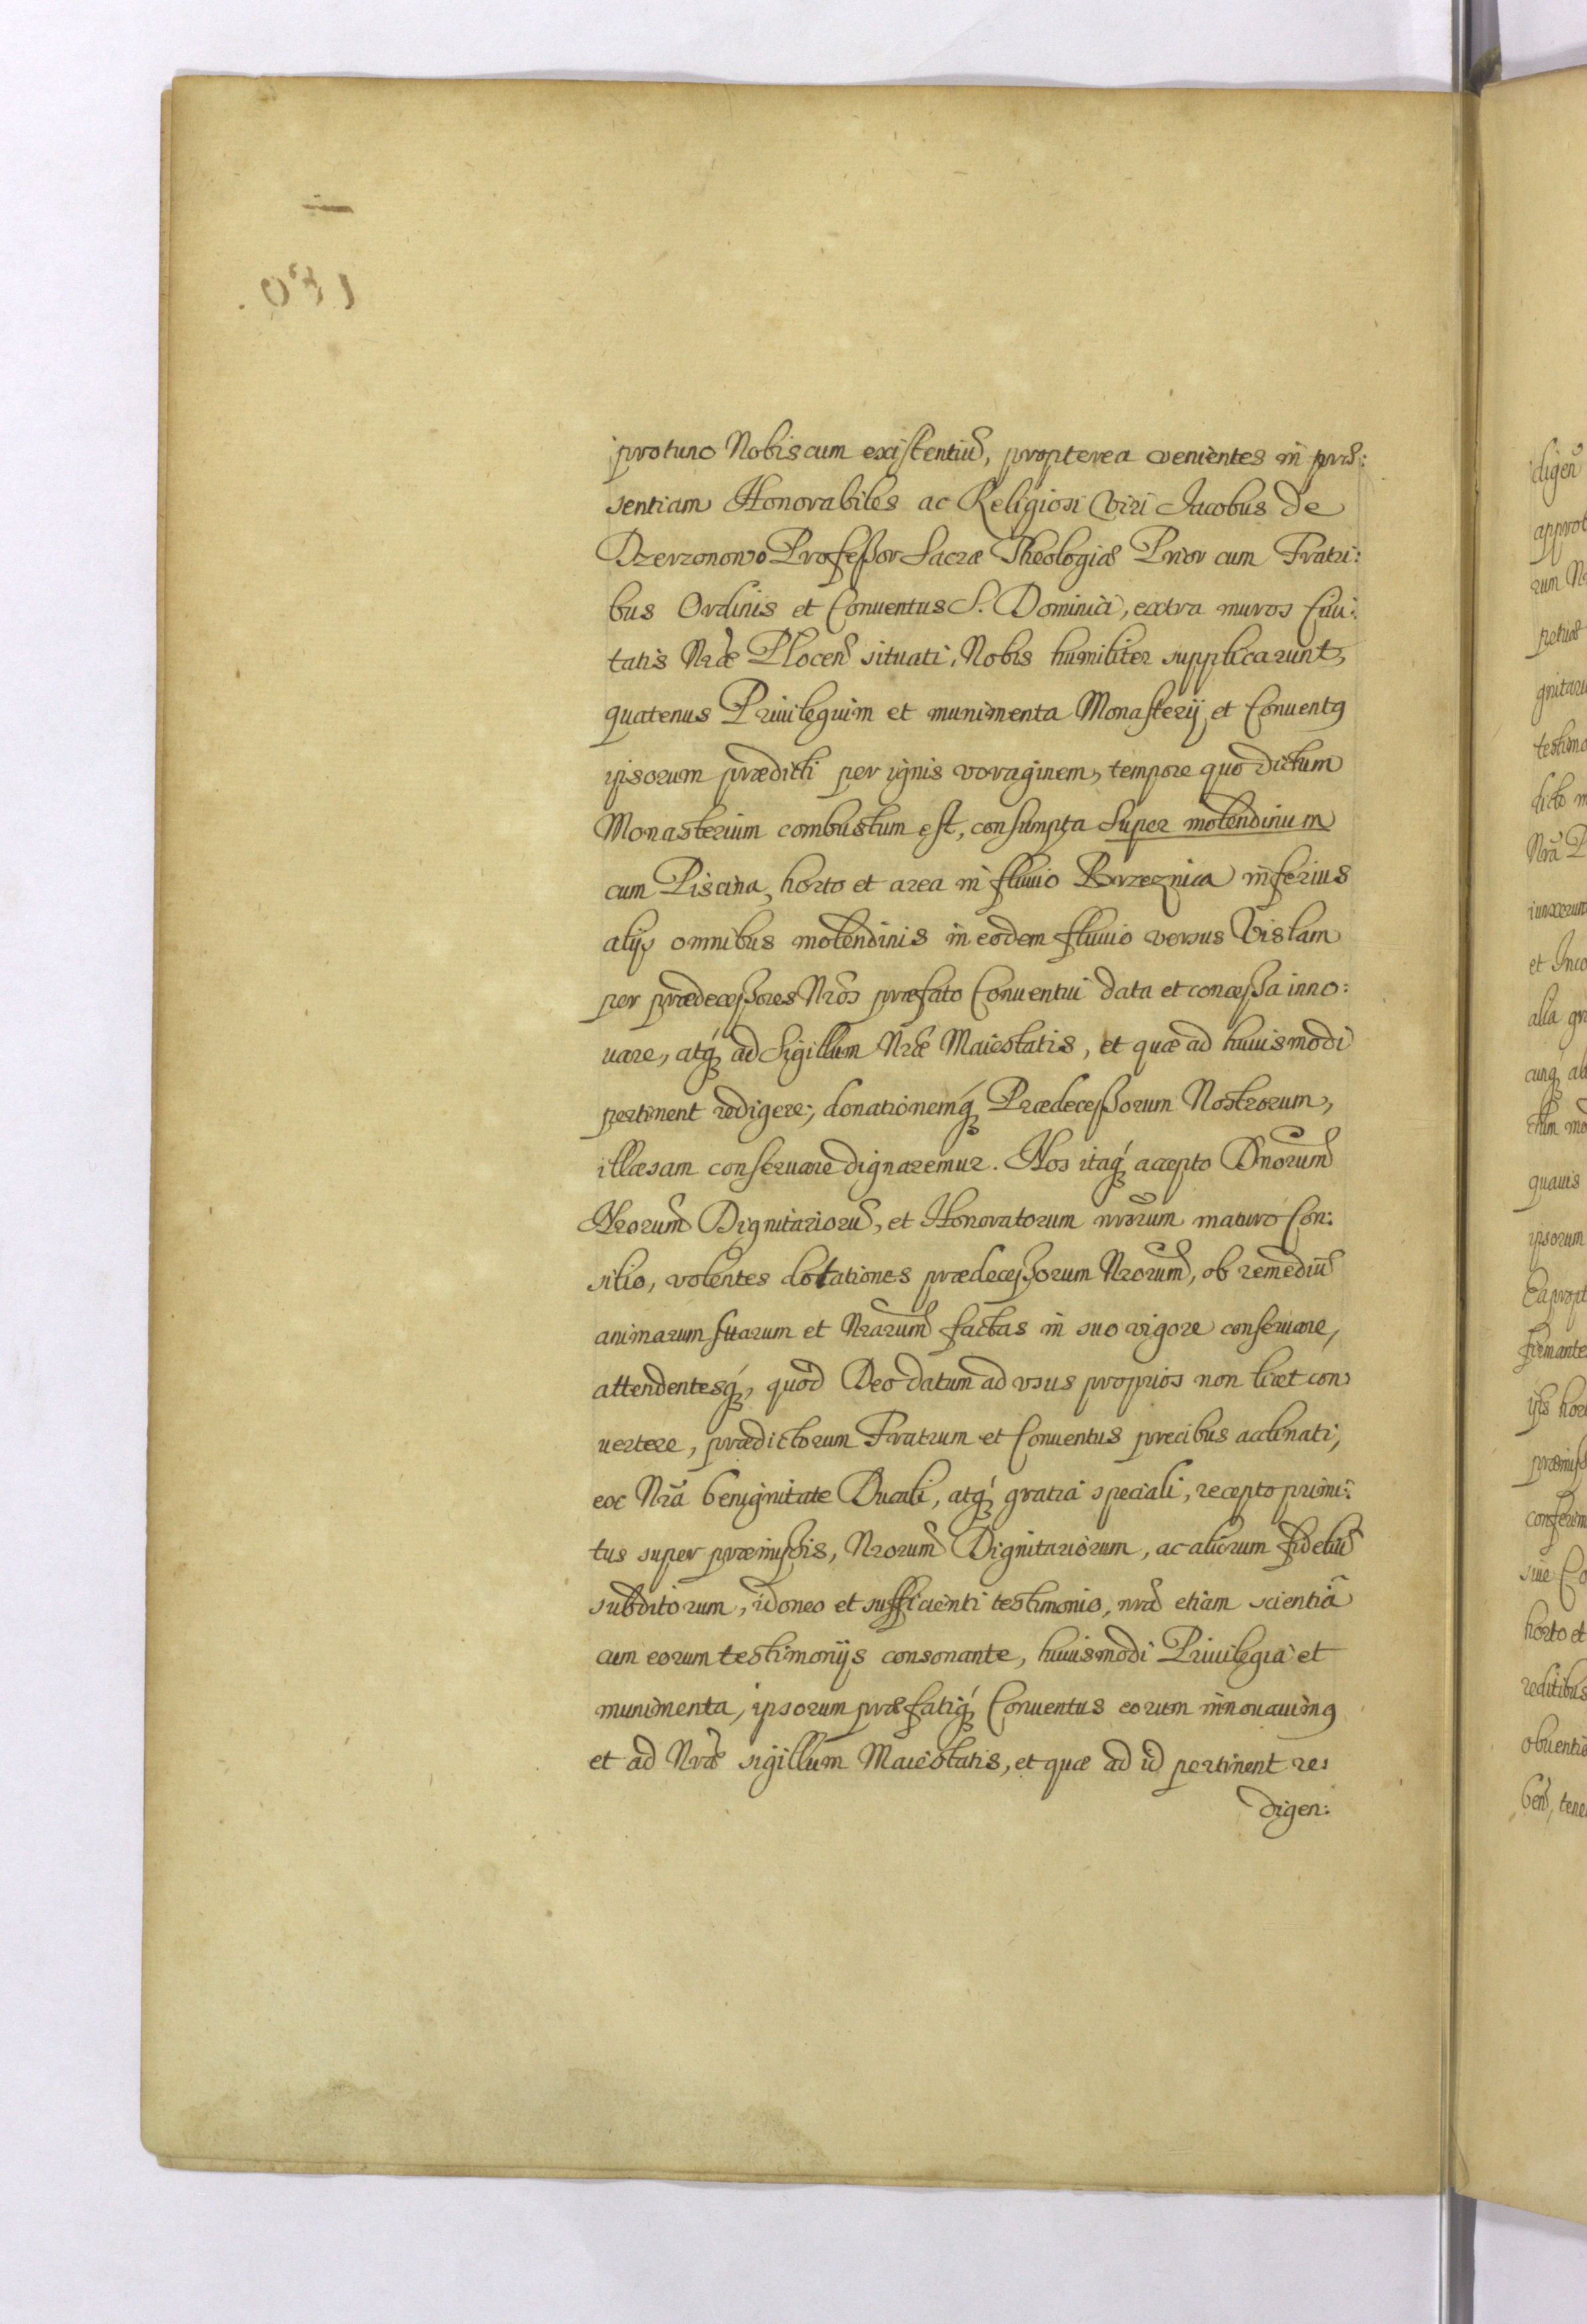 protunc Nobiscum existentiũ, propterea venientes in præ:
sentiam Honorabiles ac Religiosi Viri Jacobus de
Dzerzonowo Professor Sacræ Theologiæ Prior cum Fratri:
bus Ordinis et Conuentus S. Dominici, extra muros Ciui:
tatis Nræ Plocen situati, Nobis humiliter supplicarunt,
quatenus Priuilegium et munimenta Monasterij et Conuentq
ipsorum prædicti per ignis voraginem, tempore quo dictum
Monasterium combustum est, consumpta super molendinum
cum Piscina, horto et area in fluuio Brzeznica inferius
alijs omnibus molendinis in eodem fluuio versus Vislam
per prædecessores Nros præfato Conuentui data et concessa inno:
uare, atq́ ad Sigillum Nræ Maiestatis, et quæ ad huiusmodi
pertinent redigere, donationemq́ Prædecessorum Nostrorum,
illæsam conseruare dignaremur. Nos itaq́ accepto Dnorum
Nrorum Dignitarioru, et Honoratorum nrorum maturo Con:
silio, volentes dotationes prædecessorum Nrorum, ob remediũ
animarum suarum et Nrarum factas in suo vigore conseruare,
attendentesq́, quod Deo datum ad vsus proprios non licet con
uertere, prædictorum Fratrum et Conuentus precibus acclinati,
ex Nra benignitate Ducali, atq́ gratia speciali, recepto primi:
tus super præmissis, Nrorum Dignitariorum, ac aliorum fideliũ
subditorum, idoneo et sufficienti testimonio, nra etiam scientiâ
cum eorum testimonijs consonante, huiusmodi Priuilegia et
munimenta, ipsorum præfatiq́ Conuentus eorum innouauimq
et ad Nræ sigillum Maiestatis, et quæ ad id pertinent re:
digen: